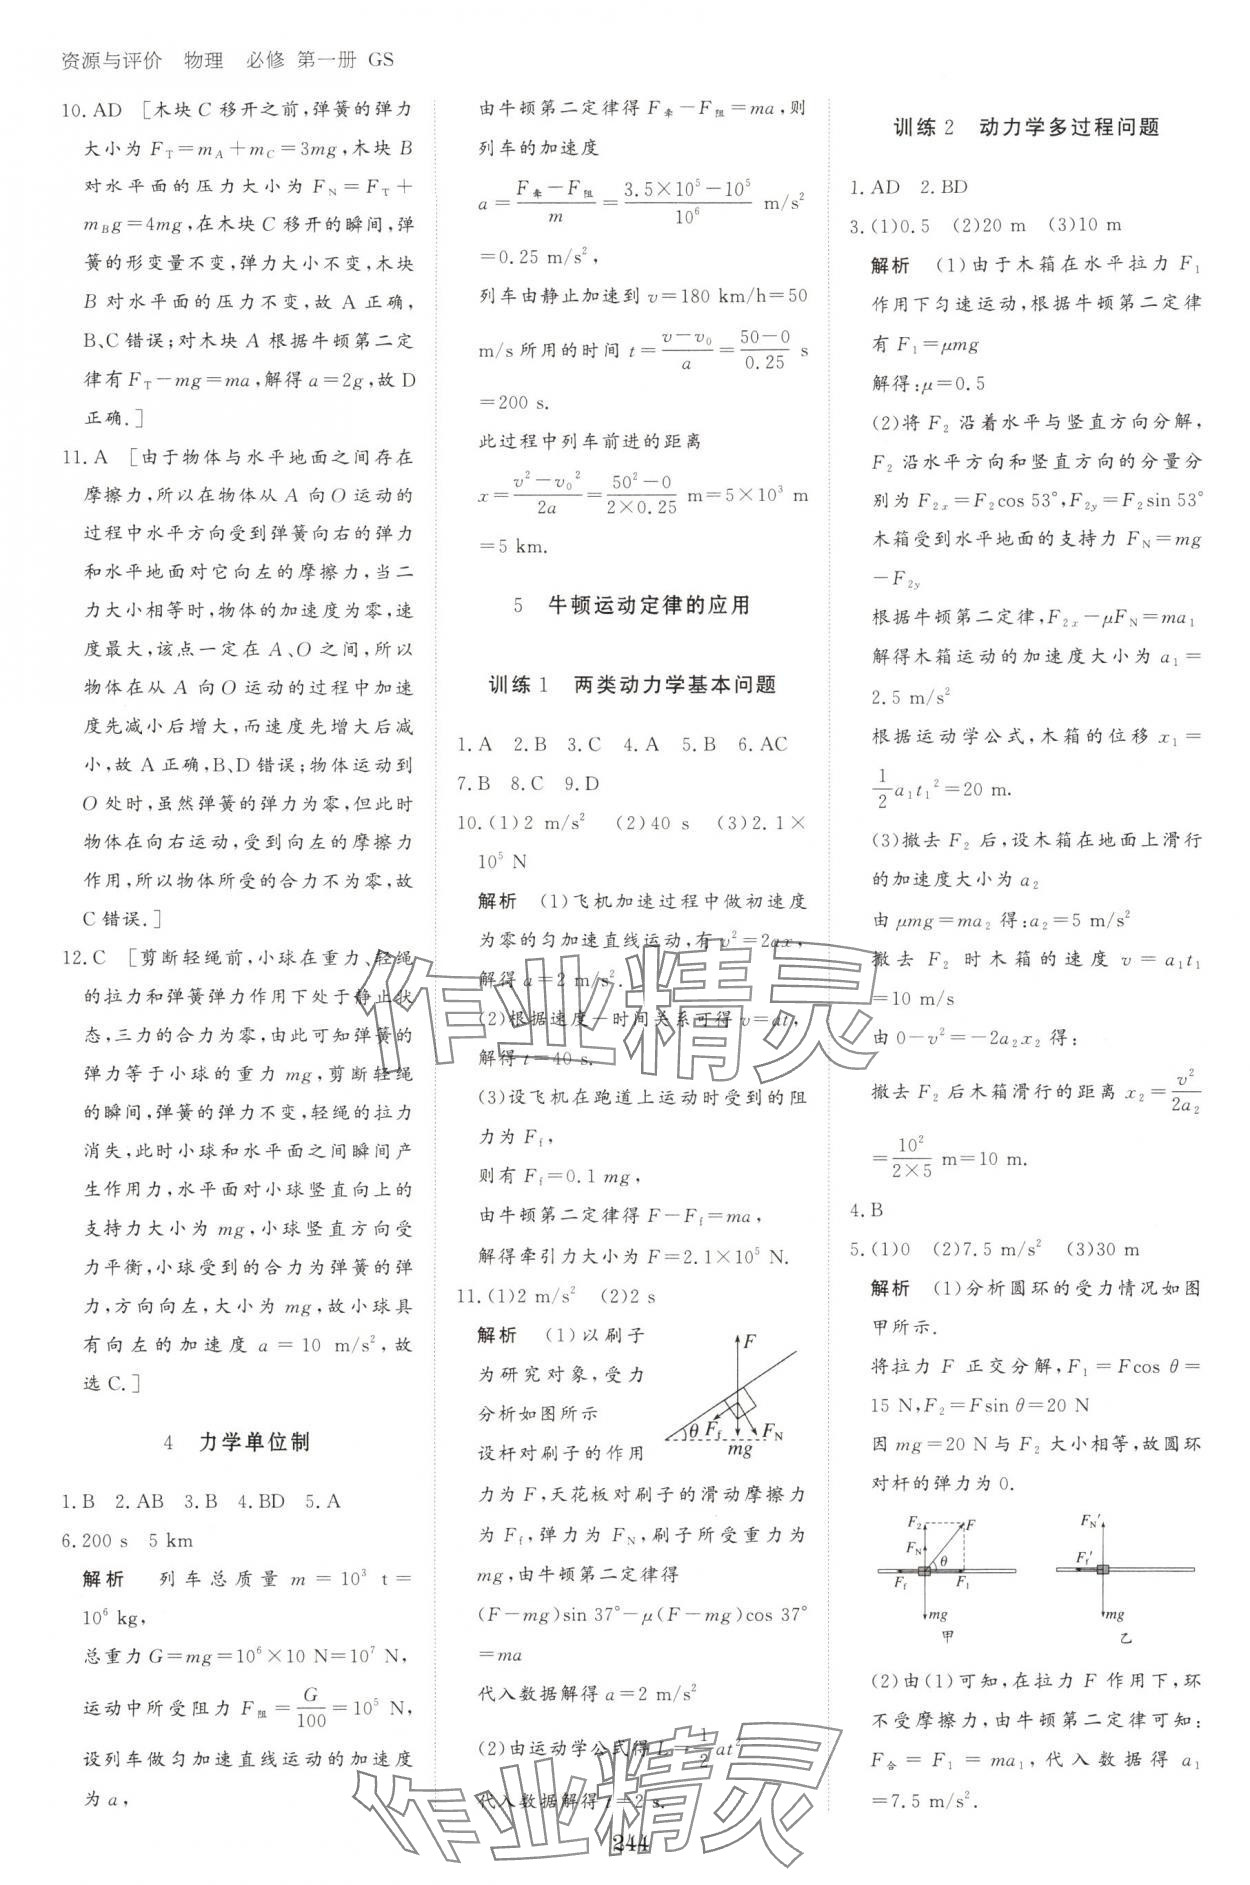 资源与评价 物理 必修 第一册 GS
10. AD [木块 C 移开之前,弹簧的弹力
大小为 F_T=m_A+m_C=3mg,木块 B
对水平面的压力大小为 F_N=F_T+
m_Bg=4mg,在木块 C 移开的瞬间,弹
簧的形变量不变,弹力大小不变,木块
B 对水平面的压力不变,故 A 正确,
B、C 错误;对木块 A 根据牛顿第二定
律有 F_T-mg=ma,解得 a=2g,故 D
正确.]
11. A [由于物体与水平地面之间存在
摩擦力,所以在物体从 A 向 O 运动的
过程中水平方向受到弹簧向右的弹力
和水平地面对它向左的摩擦力,当二
力大小相等时,物体的加速度为零,速
度最大,该点一定在 A、O 之间,所以
物体在从 A 向 O 运动的过程中加速
度先减小后增大,而速度先增大后减
小,故 A 正确,B、D 错误;物体运动到
O 处时,虽然弹簧的弹力为零,但此时
物体在向右运动,受到向左的摩擦力
作用,所以物体所受的合力不为零,故
C 错误.]
12. C [剪断轻绳前,小球在重力、轻绳
的拉力和弹簧弹力作用下处于静止状
态,三力的合力为零,由此可知弹簧的
弹力等于小球的重力 mg,剪断轻绳
的瞬间,弹簧的弹力不变,轻绳的拉力
消失,此时小球和水平面之间瞬间产
生作用力,水平面对小球竖直向上的
支持力大小为 mg,小球竖直方向受
力平衡,小球受到的合力为弹簧的弹
力,方向向左,大小为 mg,故小球具
有向左的加速度 a=10 m/s²,故
选 C.]
4 力学单位制
1. B 2. AB 3. B 4. BD 5. A
6. 200 s 5 km
解析 列车总质量 m=10³ t=
10⁶ kg,
总重力 G=mg=10⁶×10 N=10⁷ N,
运动中所受阻力 F_阻=G/100=10⁵ N,
设列车做匀加速直线运动的加速度
为 a,
由牛顿第二定律得 F_牵-F_阻=ma,则
列车的加速度
a=(F_牵-F_阻)/m=(3.5×10⁵-10⁵)/10⁶ m/s²
=0.25 m/s²,
列车由静止加速到 v=180 km/h=50
m/s 所用的时间 t=(v-v₀)/a=(50-0)/0.25 s
=200 s.
此过程中列车前进的距离
x=(v²-v₀²)/2a=(50²-0)/(2×0.25) m=5×10³ m
=5 km.
5 牛顿运动定律的应用
训练1 两类动力学基本问题
1. A 2. B 3. C 4. A 5. B 6. AC
7. B 8. C 9. D
10. (1)2 m/s² (2)40 s (3)2.1×
10⁵ N
解析 (1)飞机加速过程中做初速度
为零的匀加速直线运动,有 v²=2ax,
解得 a=2 m/s².
(2)根据速度-时间关系可得 v=at,
解得 t=40 s.
(3)设飞机在跑道上运动时受到的阻
力为 F_f,
则有 F_f=0.1 mg,
由牛顿第二定律得 F-F_f=ma,
解得牵引力大小为 F=2.1×10⁵ N.
11. (1)2 m/s² (2)2 s
解析 (1)以刷子
为研究对象,受力
分析如图所示
设杆对刷子的作用
F
θ F_f F_N
mg
力为 F,天花板对刷子的滑动摩擦力
为 F_f,弹力为 F_N,刷子所受重力为
mg,由牛顿第二定律得
(F-mg)sin 37°-μ(F-mg)cos 37°
=ma
代入数据解得 a=2 m/s²
(2)由运动学公式得 L=1/2at²
代入数据解得 t=2 s.
训练2 动力学多过程问题
1. AD 2. BD
3. (1)0.5 (2)20 m (3)10 m
解析 (1)由于木箱在水平拉力 F₁
作用下匀速运动,根据牛顿第二定律
有 F₁=μmg
解得:μ=0.5
(2)将 F₂ 沿着水平与竖直方向分解,
F₂ 沿水平方向和竖直方向的分量分
别为 F₂ₓ=F₂cos 53°,F_2y=F₂sin 53°
木箱受到水平地面的支持力 F_N=mg
-F_2y
根据牛顿第二定律,F₂ₓ-μF_N=ma₁
解得木箱运动的加速度大小为 a₁=
2.5 m/s²
根据运动学公式,木箱的位移 x₁=
1/2a₁t₁²=20 m.
(3)撤去 F₂ 后,设木箱在地面上滑行
的加速度大小为 a₂
由 μmg=ma₂ 得:a₂=5 m/s²
撤去 F₂ 时木箱的速度 v=a₁t₁
=10 m/s
由 0-v²=-2a₂x₂ 得:
撤去 F₂ 后木箱滑行的距离 x₂=v²/2a₂
=10²/(2×5) m=10 m.
4. B
5. (1)0 (2)7.5 m/s² (3)30 m
解析 (1)分析圆环的受力情况如图
甲所示.
将拉力 F 正交分解,F₁=Fcos θ=
15 N,F₂=Fsin θ=20 N
因 mg=20 N 与 F₂ 大小相等,故圆环
对杆的弹力为 0.
F₂ F F_N′
F_N θ F_f′
F_f F₁
mg mg
甲 乙
(2)由(1)可知,在拉力 F 作用下,环
不受摩擦力,由牛顿第二定律可知:
F_合=F₁=ma₁,代入数据得 a₁
=7.5 m/s².
作业精灵
作业精灵
244